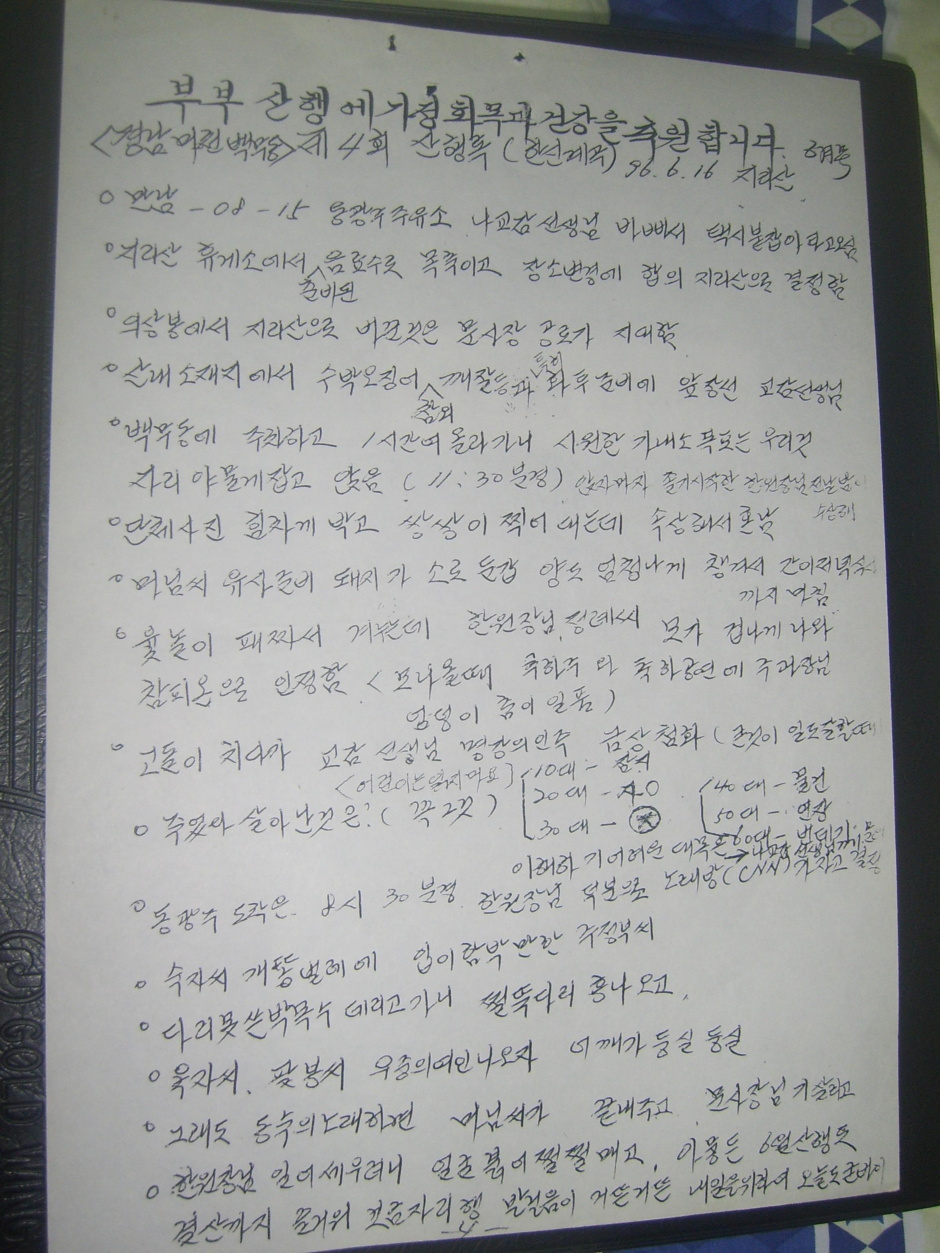 부부 산행에 가정화목과 건강을 축원합니다.
<정감어린 백무동> 제4회 산행록 (한신계곡) 96. 6. 16 지리산
○ 만남 - 08 - 15 동광주주유소 나교감선생님 바빠서 택시붙잡아타고오심
○ 지리산 휴게소에서 준비된 음료수로 목축이고 장소변경에 합의 지리산으로 결정함
○ 의상봉에서 지리산으로 바꾼것은 문사장 공로가 지대함
○ 산내 소재지에서 수박오징어 참외 깨잘등과 특히 화투준비에 앞장선 교감선생님
○ 백무동에 주차하고 1시간여 올라가니 시원한 가내소폭포는 우리것
자리 야물게잡고 앉음 (11:30분경)
○ 단체사진 힘차게 박고 쌍쌍이 찍어 대는데 속상해서 혼남
○ 마님씨 유사준비 돼지가 소로 둔갑 양도 엄청나게 챙겨서 간이저녁식사
까지 마침
○ 윷놀이 패짜서 겨루는데 한원장님, 정례씨 모가 겁나게 나와
참피온으로 인정함 <모나올때 축하주와 축하공연에 주과장님
엉덩이 춤이 일품)
○ 고돌이 치다가 교감선생님 명강의인즉 금상첨화
<어린이는읽지마요>
○ 죽었다 살아난것은? (꼭그것)
10대 - 잠지
20대 -
30대 -
40대 - 물건
50대 - 연장
60대 - 번데기
이해하기어려운 대목은 → 나교감선생님께
○ 동광주 도착은 8시 30분경 한원장님 덕분으로 노래방(CNN) 가자고 결정
○ 숙자씨 개똥벌레에 입이함박만한 주정부씨
○ 다리못쓴박목수 데리고가니 찔뚝다리 흥나오고,
○ 욱자씨, 팢봉씨 우중의여인나오자 어깨가 둥실 둥실
○ 그래도 동숙의노래하면 마님씨가 끝내주고 문사장님 기살리고
○ 한원장님 일어세우려니 쩔쩔매고, 아뭏든 6월산행도
결산까지 즐거워 잠자리행 발걸음이 거뜬거뜬 내일을위하여 오늘도굳바이
- 4 -
GOLD WING